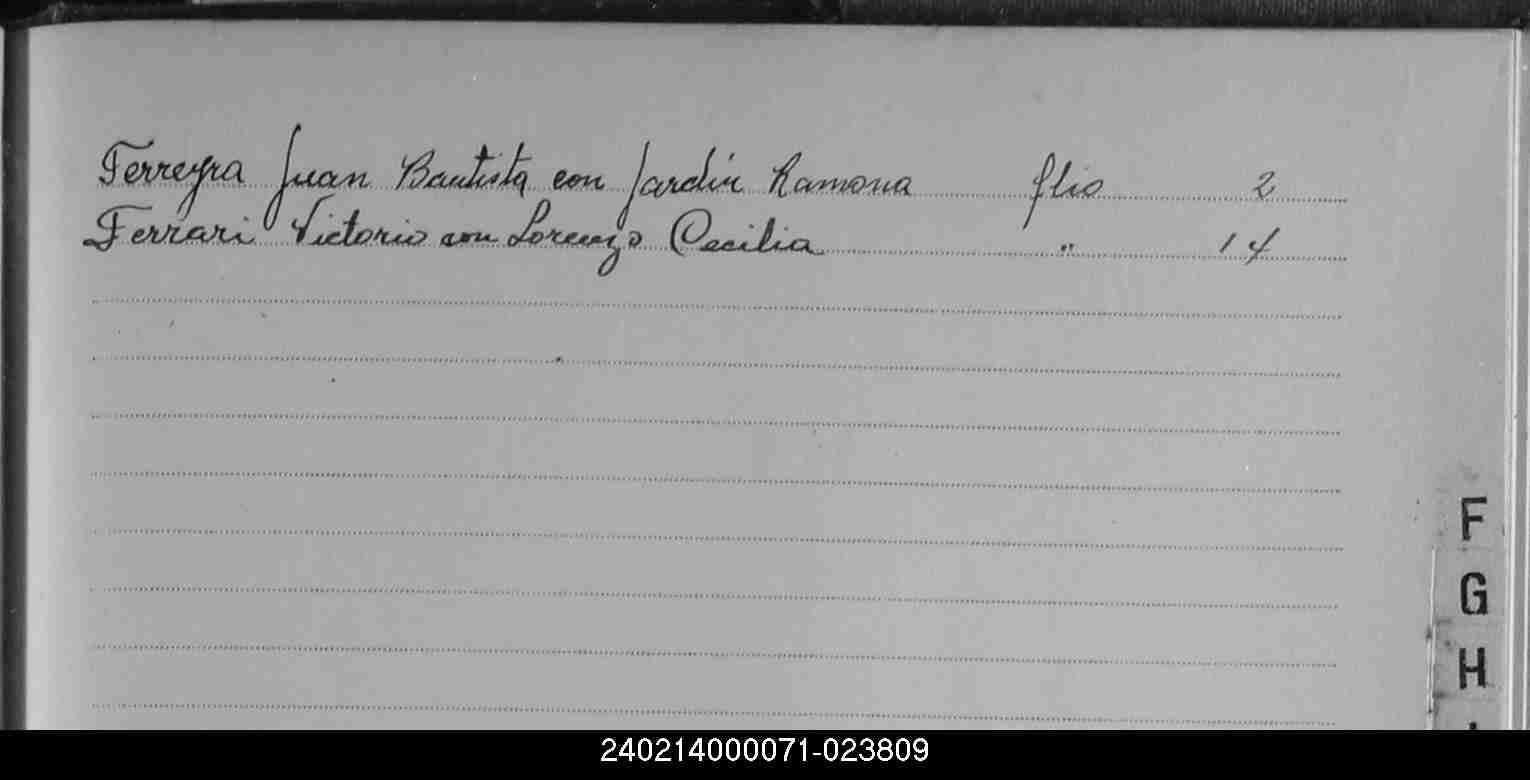 Ferreyra Juan Bautista con Jardin Ramona flio 2
Ferrari Victorio con Lorenzo Cecilia " 14
F
G
H
240214000071-023809